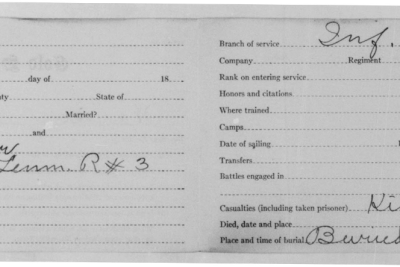 day of 18
nty State of
Married?
and
Tenn. R# 3
Branch of service Inf.
Company Regiment
Rank on entering service
Honors and citations
Where trained
Camps
Date of sailing
Transfers
Battles engaged in
Casualties (including taken prisoner) Ki
Died, date and place
Place and time of burial Buried